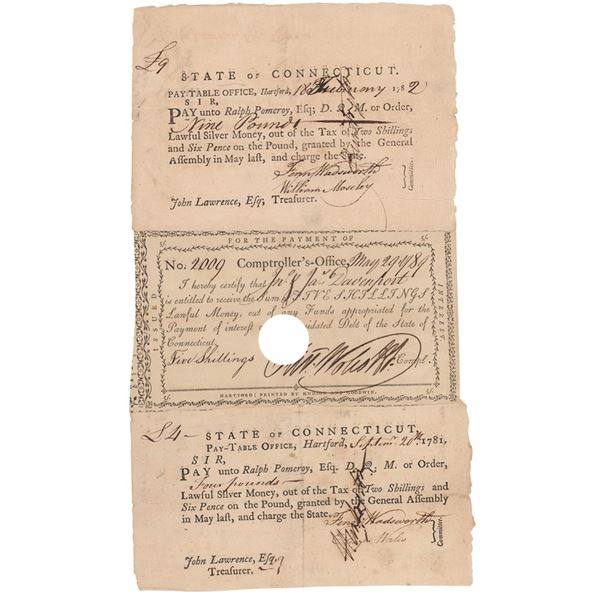 £9
STATE OF CONNECTICUT.
PAY-TABLE OFFICE, Hartford, 1782
SIR,
PAY unto Ralph Pomeroy, Esq; D. Q. M. or Order,
Nine Pounds
Lawful Silver Money, out of the Tax of Two Shillings
and Six Pence on the Pound, granted by the General
Assembly in May last, and charge the
Fenn Wadsworth
William Moseley
Committee.
John Lawrence, Esq; Treasurer.
FOR THE PAYMENT OF
5/. 5/.
ISSUED INTEREST
No. 2009 Comptroller's-Office, May 29 1789
I hereby certify that Davenport
is entitled to receive the Sum of FIVE SHILLINGS
Lawful Money, out of any Funds appropriated for the
Payment of interest on Debt of the State of
Connecticut.
Five Shillings Compt.
5/. 5/.
HARTFORD: PRINTED BY HUDSON AND GOODWIN.
£4
STATE OF CONNECTICUT,
PAY-TABLE OFFICE, Hartford, Septm 20th 1781,
SIR,
PAY unto Ralph Pomeroy, Esq. D. Q. M. or Order,
Four pounds
Lawful Silver Money, out of the Tax of Two Shillings and
Six Pence on the Pound, granted by the General Assembly
in May last, and charge the State.
Fenn Wadsworth
Wales
Committee.
John Lawrence, Esq;
Treasurer.